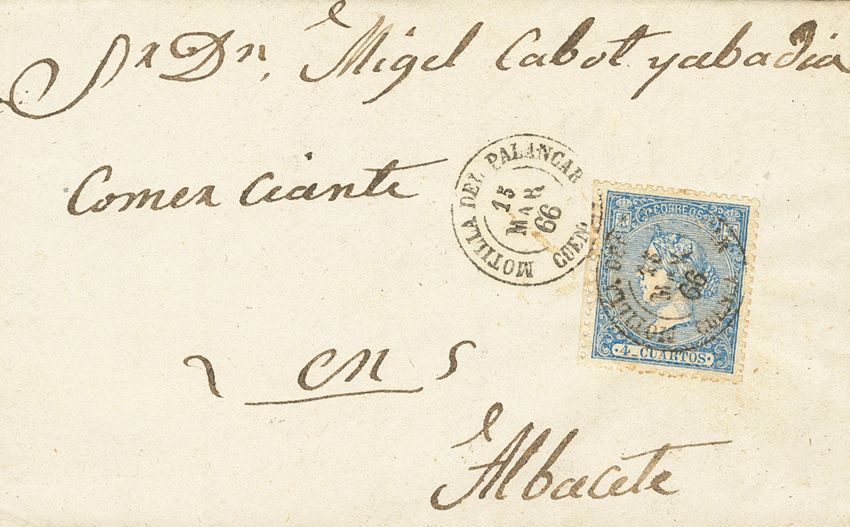 Sr Dn. Migel Cabot yabadia
Comerciante
en
Albacete
MOTILLA DEL PALANCAR
15
MAR
66
CUEN
CORREOS
4 CUARTOS
MOTILLA DEL
15
M
66